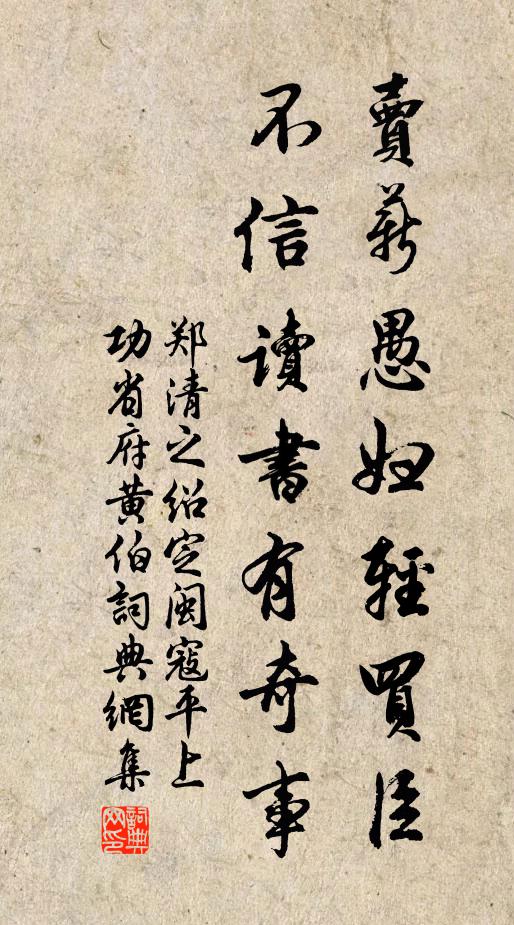 賣薪愚婦輕買臣
不信讀書有奇事
郑清之绍定閩寇平上
功省府黄伯詞典網集
詞典網印